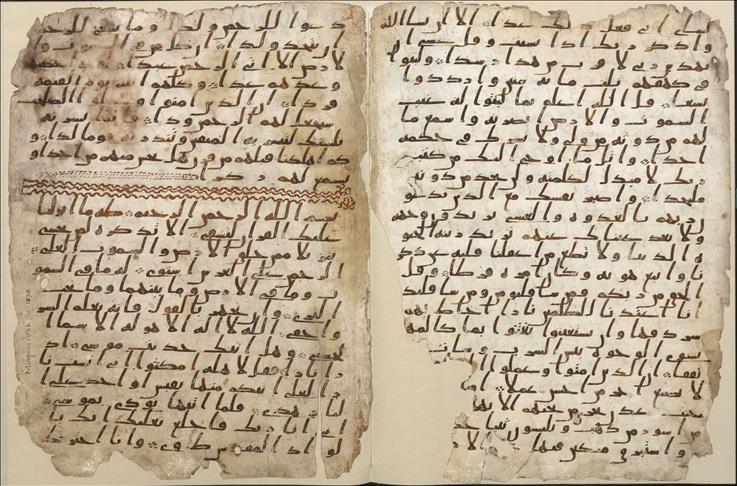 لشاي اني فاعل ذلك غدا الا ان يشا الله
واذكر ربك اذا نسيت وقل عسى ا
ن يهدين ربي لاقرب من هذا رشدا ولبثوا
في كهفهم ثلث مائة سنين وازدادوا
تسعا قل الله اعلم بما لبثوا له غيب
السموت والارض ابصر به واسمع ما
لهم من دونه من ولي ولا يشرك في حكمه
احدا واتل ما اوحي اليك من كتب
ربك لا مبدل لكلمته ولن تجد من دونه
ملتحدا واصبر نفسك مع الذين يدعو
ن ربهم بالغدوة والعشي يريدون وجهه
ولا تعد عيناك عنهم تريد زينة الحيو
ة الدنيا ولا تطع من اغفلنا قلبه عن ذكر
نا واتبع هويه وكان امره فرطا وقل
الحق من ربكم فمن شا فليومن ومن شا فليكفر
انا اعتدنا للظلمين نارا احاط بهم
سردقها وان يستغيثوا يغثوا بما كالمهل
يشوي الوجوه بئس الشرب وسات مر
تفقا ان الذين امنوا وعملوا
لا نضيع اجر من احسن عملا
جنت عدن تجري من تحتهم الانهر
من اسور من ذهب ويلبسون ثيابا خضر
واستبرق متكين فيها الار
دعوا للرحمن ولدا وما ينبغي للرحمن
ان يتخذ ولدا ان كل من في السموت وا
لارض الا اتي الرحمن عبدا لقد احصهم
وعدهم عدا وكلهم اتيه يوم القيمة
فردا ان الذين امنوا وعملوا الصلحت
سيجعل لهم الرحمن ودا فانما يسرنه
بلسنك لتبشر به المتقين وتنذر به قوما لدا و
كم اهلكنا قبلهم من قرن هل تحس منهم من احد او
تسمع لهم ركزا
بسم الله الرحمن الرحيم طه ما انزلنا
عليك القران لتشقى الا تذكرة لمن يخشى
تنزيلا ممن خلق الارض والسموت العلى
الرحمن على العرش استوى له ما في السمو
ت وما في الارض وما بينهما وما تحت
الثرى وان تجهر بالقول فانه يعلم السر
واخفى الله لا اله الا هو له الاسما ا
لحسنى وهل اتيك حديث موسى اذ
را نارا فقل لاهله امكثوا اني انست نا
را لعلي اتيكم منها بقبس او اجد على ا
لنار هدى فلما اتيها نودي يموسى
اني انا ربك فاخلع نعليك انك با
لواد المقدس طوى وانا اخترتك